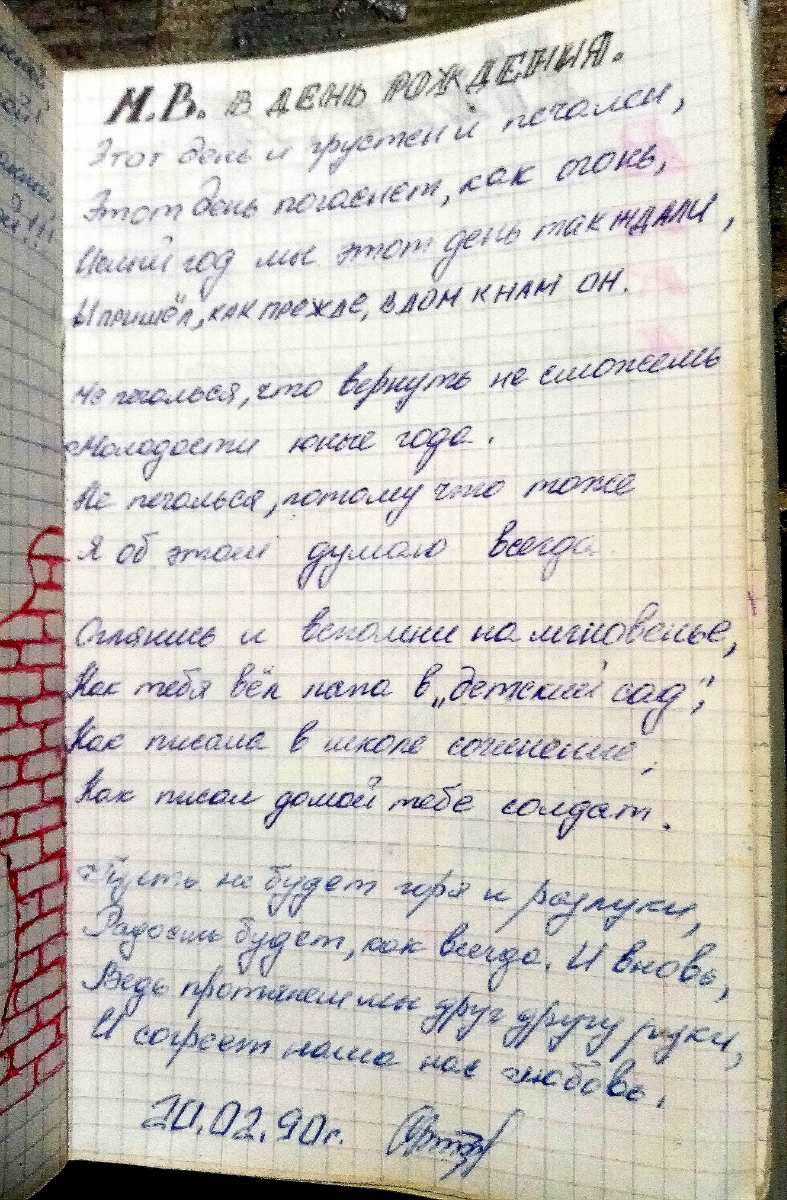 М.В. В ДЕНЬ РОЖДЕНИЯ.
Этот день и грустен и печален,
Этот день погаснет, как огонь,
Целый год мы этот день так ждали,
И пришёл, как прежде, в дом к нам он.
Не печалься, что вернуть не сможешь
Молодости юные года.
Не печалься, потому что тоже
Я об этом думаю всегда.
Оглянись и вспомни на мгновенье,
Как тебя вёл папа в „детский сад",
Как писала в школе сочинение,
Как писал домой тебе солдат.
Пусть не будет горя и разлуки,
Радость будет, как всегда. И вновь,
Ведь протянем мы друг другу руки,
И согреет наша нас любовь.
20.02.90г.